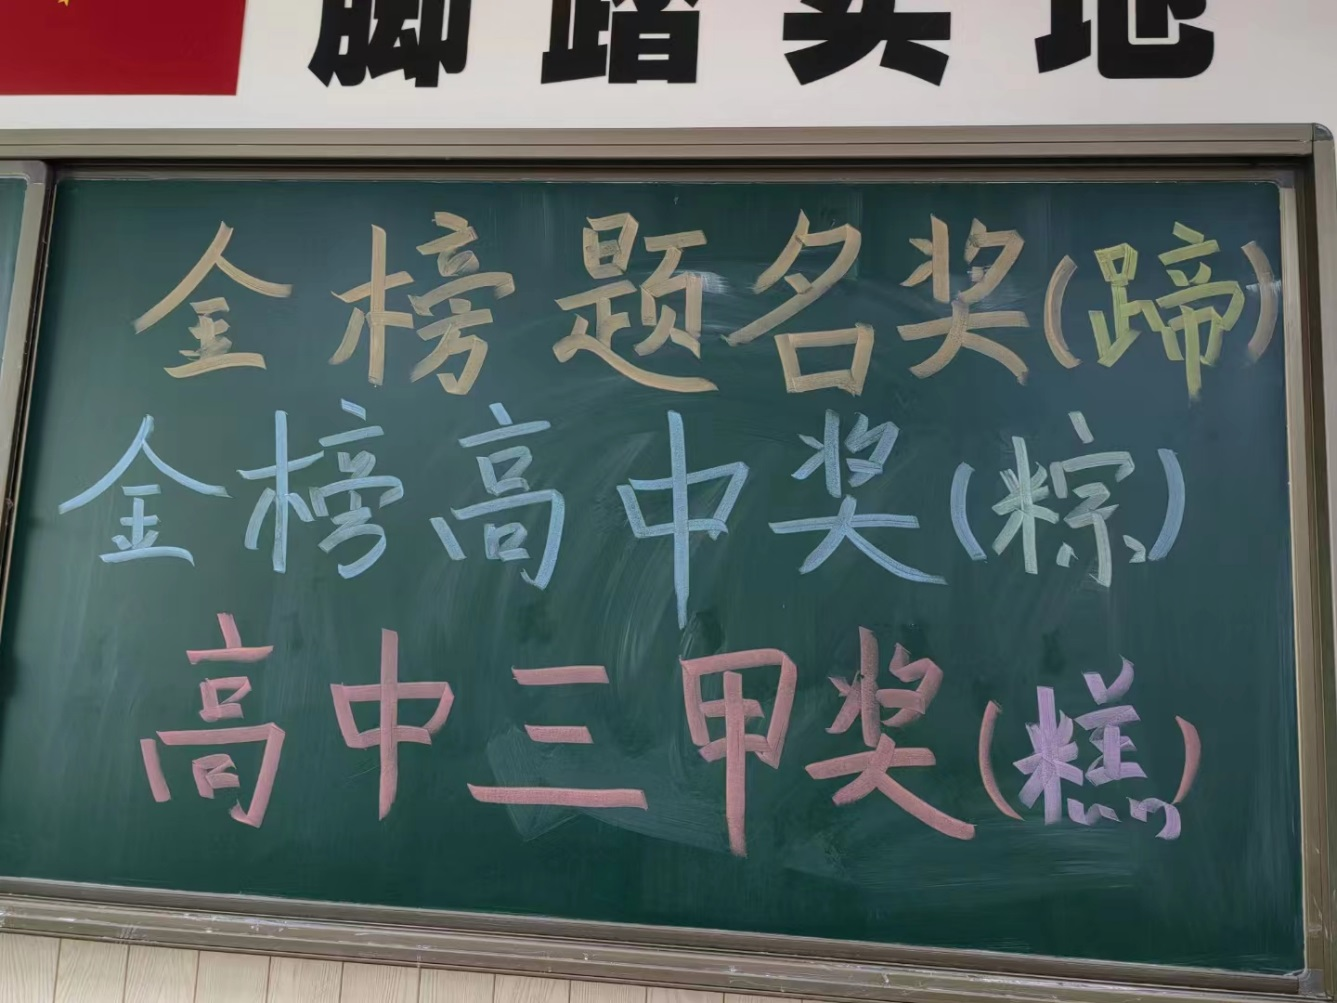 脚踏实地
金榜题名奖(蹄)
金榜高中奖(粽)
高中三甲奖(糕)